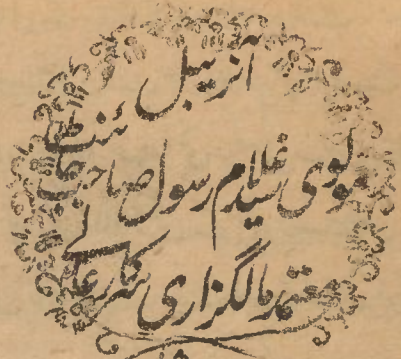 آنریبل
مولوی سید غلام رسول صاحب
معتمد مالگزاری سرکار عالی